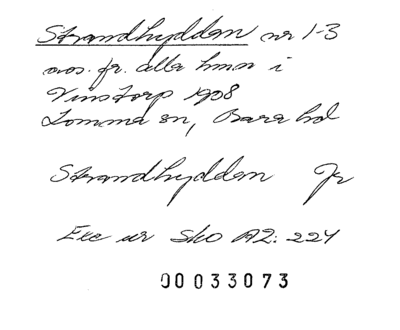 Strandhydden nr 1-3
avs. fr. alla hmn i
Vinstorp 1908
Lomma sn, Bara hd
Strandhydden Jr
Exc ur Sko A2: 224
00033073